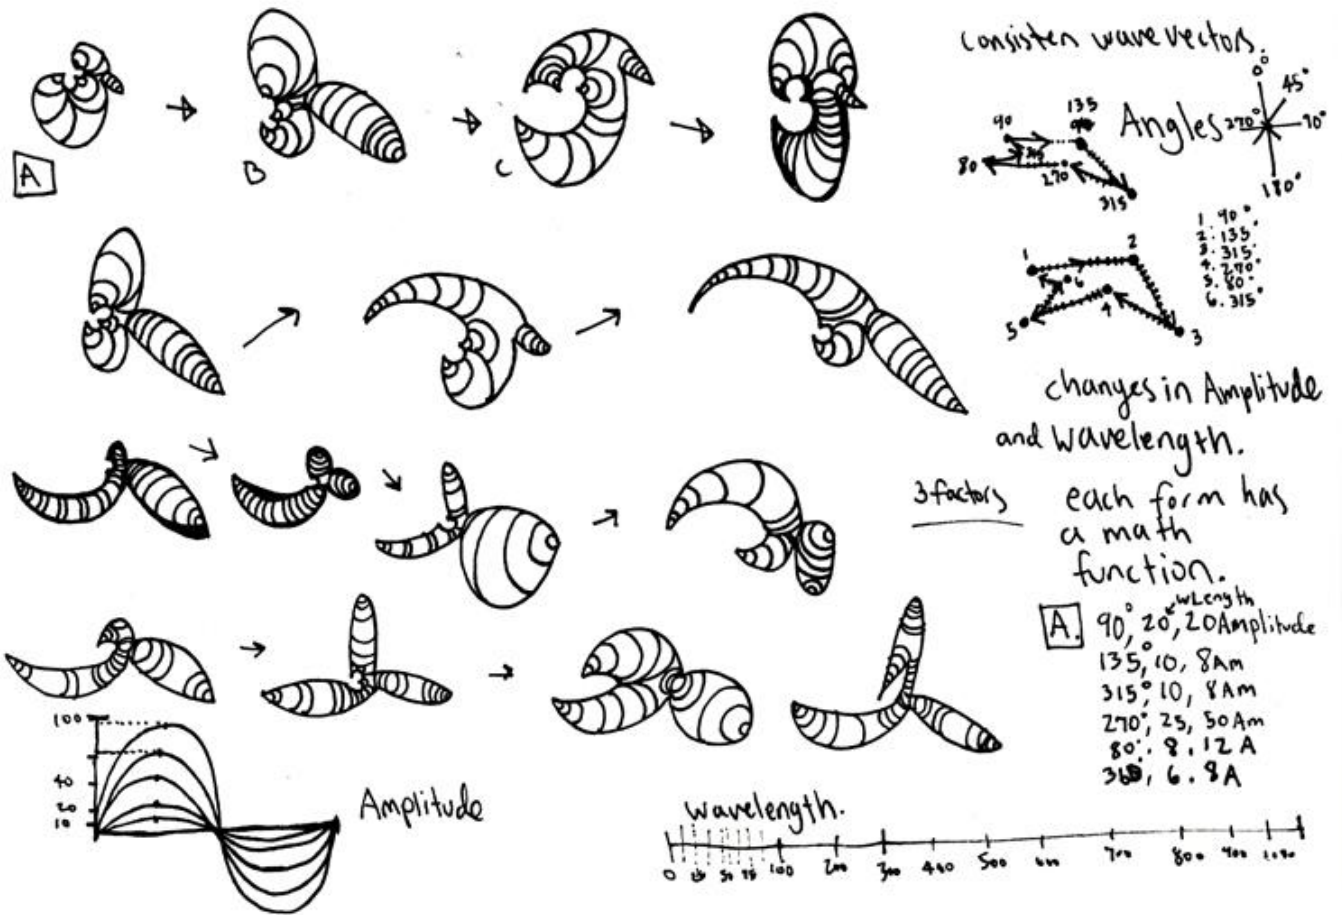 consisten wave vectors.
0°
45°
90°
180°
270°
Angles
90
135
80
270
315
1. 90°
2. 135°
3. 315°
4. 270°
5. 80°
6. 315°
1
2
3
4
5
6
A
B
C
changes in Amplitude
and wavelength.
3 factors
each form has
a math
function.
wLength
A. 90°, 20, 20 Amplitude
135°, 10, 8 Am
315°, 10, 8 Am
270°, 25, 50 Am
80°. 8. 12 A
6. 8 A
100
40
20
10
Amplitude
wavelength.
0
50
75
100
200
300
400
500
600
700
800
900